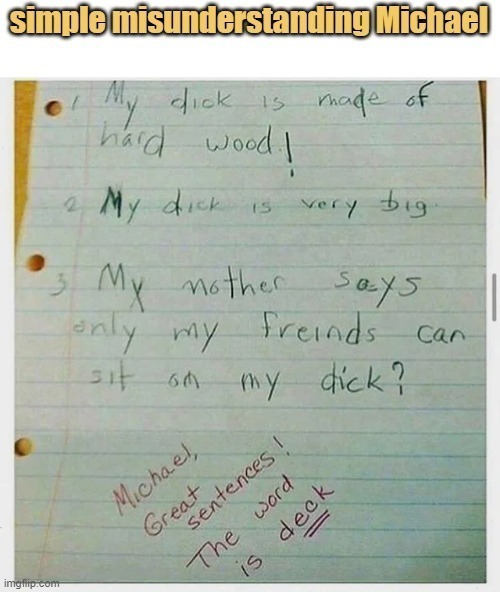 simple misunderstanding Michael
1 My dick is made of
hard wood!
2 My dick is very big.
3 My mother says
only my freinds can
sit on my dick?
Michael,
Great
sentences!
The word
is deck
imgflip.com